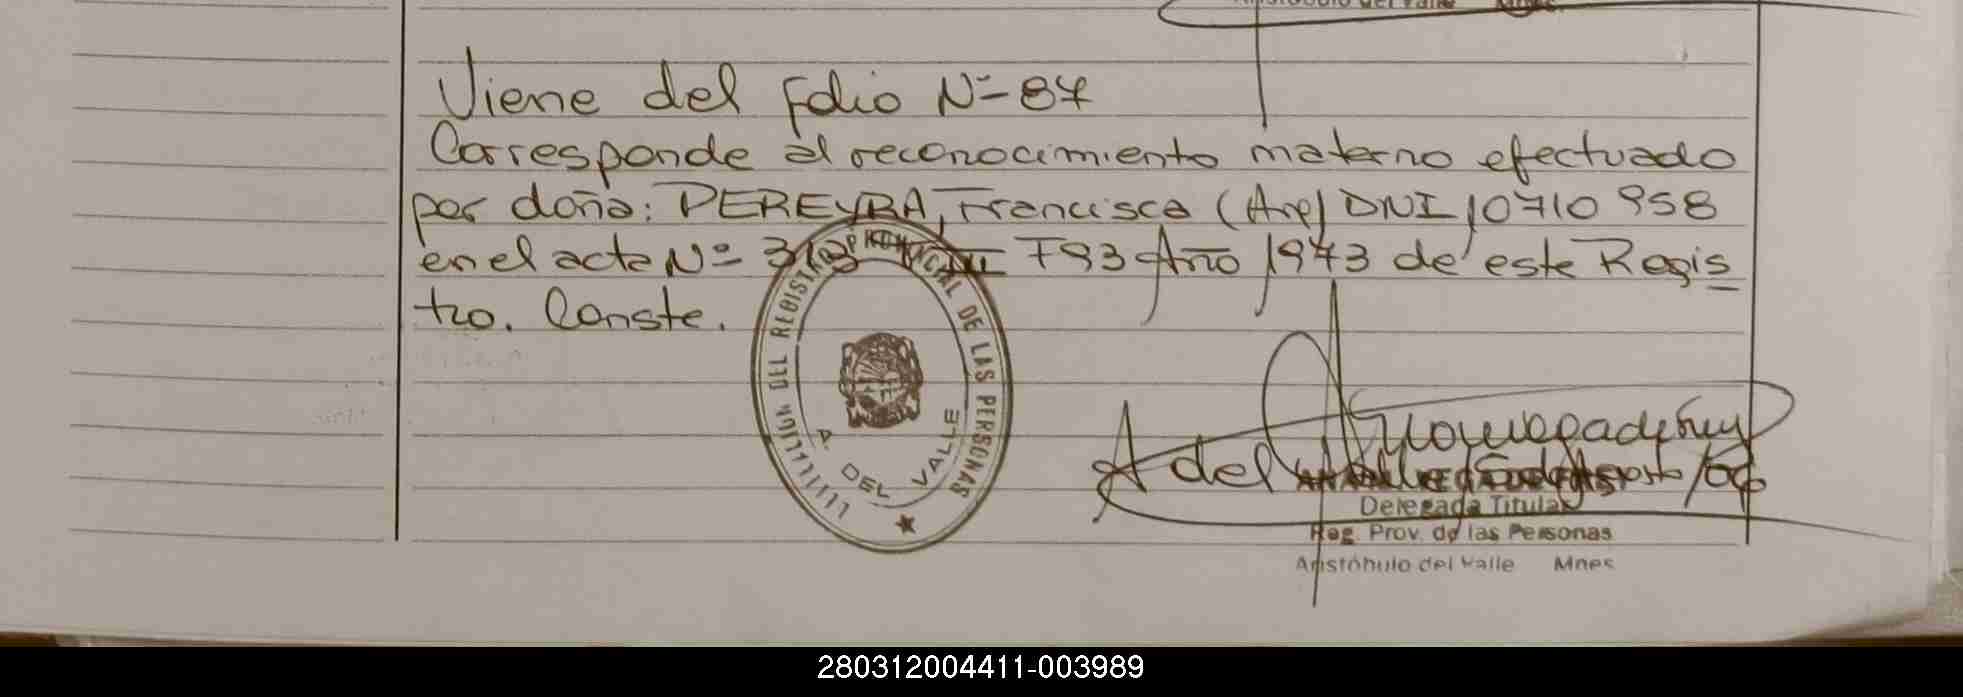 Viene del Folio Nº 87
Corresponde al reconocimiento materno efectuado
por doña: PEREYRA, Francisca (Arg) DNI 10710958
en el acta Nº 313 T93 Año 1973 de este Regis
tro. Conste.
DEL REGISTRO PROVINCIAL DE LAS PERSONAS
A. DEL VALLE
A del Valle
Delegada Titular
Reg. Prov. de las Personas
Aristóbulo del Valle Mnes
280312004411-003989